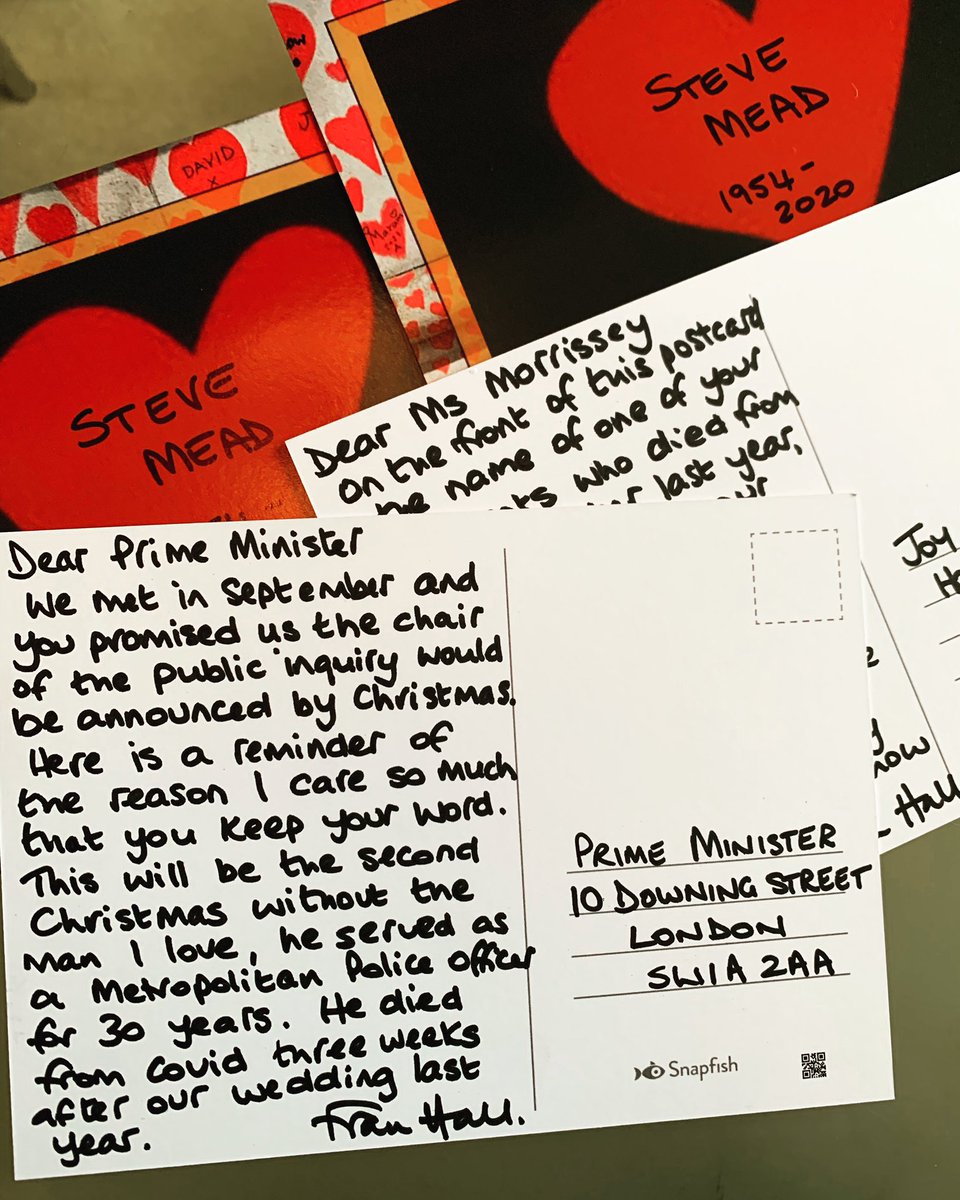 STEVE
MEAD
1954-
2020
DAVID
X
STEVE
MEAD
Dear Ms Morrissey
on the front of this postcard
the name of one of your
who died from
last year,
Joy
now
Hall
Dear Prime Minister
We met in September and
you promised us the chair
of the public inquiry would
be announced by Christmas.
Here is a reminder of
the reason I care so much
that you keep your word.
This will be the second
Christmas without the
man I love, he served as
a Metropolitan Police officer
for 30 years. He died
from Covid three weeks
after our wedding last
year.
Fran Hall.
PRIME MINISTER
10 DOWNING STREET
LONDON
SW1A 2AA
Snapfish